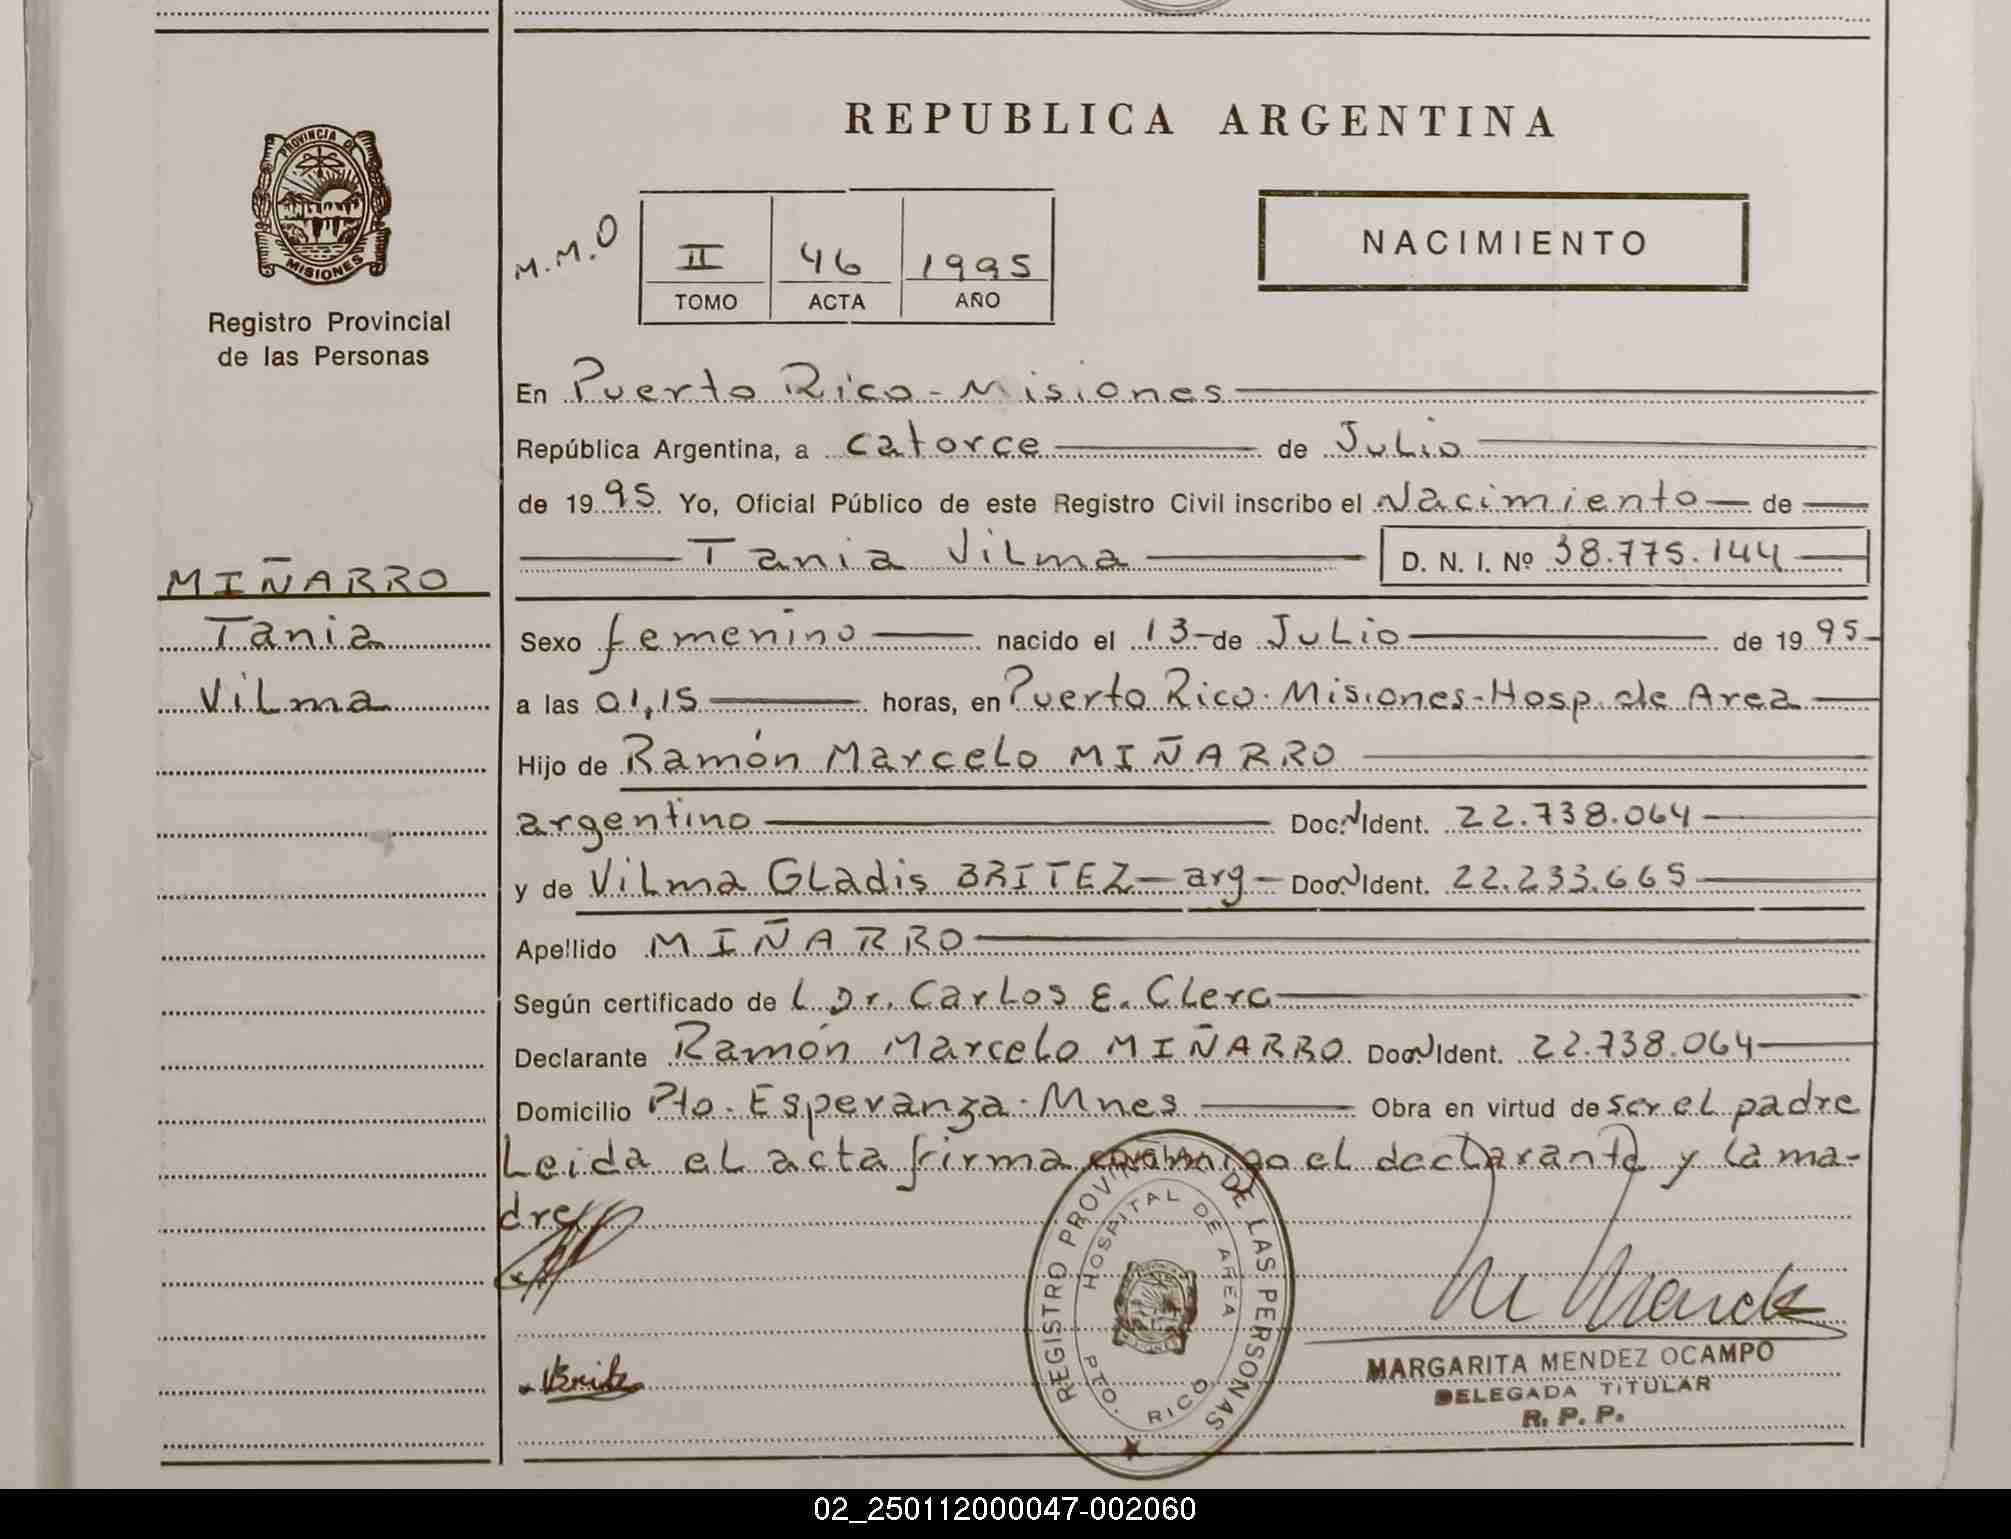 REPUBLICA ARGENTINA
PROVINCIA DE MISIONES
Registro Provincial
de las Personas
M.M.O
II 46 1995
TOMO ACTA AÑO
NACIMIENTO
En Puerto Rico - Misiones
República Argentina, a catorce de Julio
de 1995 Yo, Oficial Público de este Registro Civil inscribo el Nacimiento de
Tania Vilma D. N. I. Nº 38.775.144
MIÑARRO
Tania
Vilma
Sexo femenino nacido el 13 de Julio de 1995
a las 01,15 horas, en Puerto Rico. Misiones-Hosp. de Area
Hijo de Ramón Marcelo MIÑARRO
argentino Doc. Ident. 22.738.064
y de Vilma Gladis BRITEZ - arg - Doc. Ident. 22.233.665
Apellido MIÑARRO
Según certificado de L Dr. Carlos E. Clerc
Declarante Ramón Marcelo MIÑARRO Doc. Ident. 22.738.064
Domicilio Pto. Esperanza. Mnes Obra en virtud de ser el padre
Leida el acta firma conmigo el declarante y la ma-
dre
REGISTRO PROVINCIAL DE LAS PERSONAS
HOSPITAL DE AREA
PTO. RICO
MARGARITA MENDEZ OCAMPO
DELEGADA TITULAR
R. P. P.
02_250112000047-002060